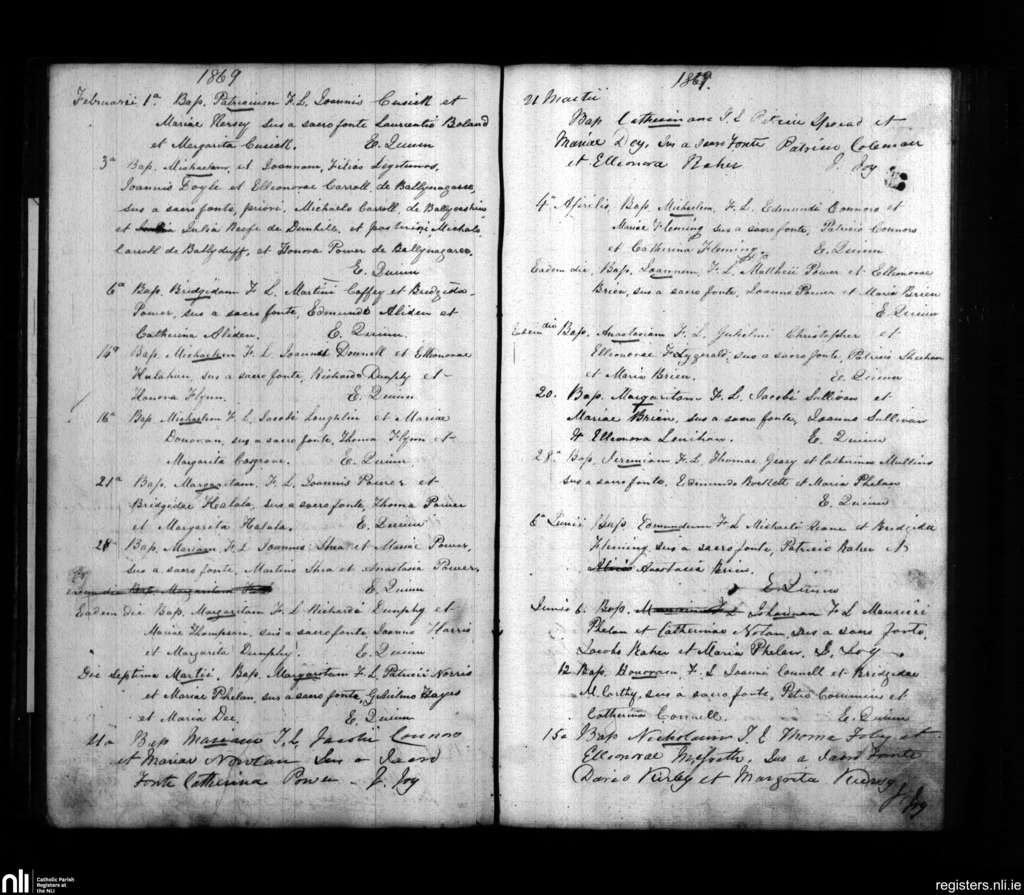 1869
Februarii 1a Bap. Patricium F. L. Joannis Cusick et
Mariae Hersey sus a sacro fonte Laurentio Boland
et Margarita Cusick. E. Quinn
3a Bap. Michaelem, et Joannem, Filios Legitimos,
Joannis Doyle et Elleonorae Carroll, de Ballynagares,
sus a sacro fonte, priori, Michaele Carroll, de
et Julia Keefe de Dunhile, et posteriori, Michale
Carroll de Ballyduff, et Honora Power de Ballynagares.
E. Quinn
6a Bap. Bridgidam F. L. Martini Caffey et Bridgida
Power, sus a sacro fonte, Edmundo
Catherina E. Quinn.
Bap. Michaelem F. L. Joannis Donnell et Ellonorae
Halahan, sus a sacro fonte, Richardo Dunphy et
Honora Flynn. E. Quinn
16a Bap. Michaelem F. L. Jacobi Loughlin et Mariae
Donovan, sus a sacro fonte, Thoma Flynn et
Margarita Cosgrave. E. Quinn.
21a Bap. Margaritam F. L. Joannis Power et
Bridgidae Halala, sus a sacro fonte, Thoma Power
et Margarita Halala. E. Quinn
28a Bap. Mariam, F. L. Joannis Shea et Mariae Power,
sus a sacro fonte, Martino Shea et Anastasia Power.
E. Quinn
Eadem die Bap. Margaritam F. L. Richardi Dunphy et
Mariae Thompson, sus a sacro fonte, Joanne Harris
et Margarita Dunphy. E. Quinn
Die septima Martii, Bap. Margaritam F. L. Patricii Norris
et Mariae Phelan, sus a sacro fonte, Gulielmo Hayes
et Maria Dee. E. Quinn
21a Bap Mariam F. L. Jacobi Connors
et Mariae Nowlan Sus a Sacro
Fonte Catherina Power J. Joy
1869.
21 Martii
Bap Catherinam F. L. Patricii et
Mariae Doy, Sus a Sacro Fonte Patricio Coleman
et Elleonora Maher J. Joy
4a Aprilis, Bap. Michaelem, F. L. Edmundi Connors et
Mariae Fleming, sus a sacro fonte, Patricio Connors
et Catherina Fleming. E. Quinn
Eadem die, Bap. Joannem, F. L. Matthaei Power et Ellonorae
Brien, sus a sacro fonte, Joanne Power et Maria Brien
E. Quinn
Eadem die Bap. Anastasiam F. L. Gulielmi Christopher et
Elleonorae Fitzgerald, sus a sacro fonte, Patricio Sheehan
et Maria Brien. E. Quinn
20. Bap. Margaritam F. L. Jacobi Sullivan et
Mariae Brien, sus a sacro fonte, Joanne Sullivan
& Elleonora Lenihan. E. Quinn
28a Bap. Jeremiam F. L. Thomae Geary et Catherinae Mullins
sus a sacro fonte. Edmundo et Maria Phelan
E. Quinn
6a Junii Bap. Edmundum F. L. Michaelis Keane et Bridgidae
Fleming, sus a sacro fonte, Patricio Maher et
Anastacia Brien.
E. Quinn
Junii 6. Bap. Johannam F. L. Mauricii
Phelan et Catherinae Nolan, sus a sacro fonte,
Jacobo Maher et Maria Phelan. J. Joy
12 Bap. Honoram, F. L. Joannis Connell et Bridgidae
McCarthy, sus a sacro fonte, Petro Cummins et
Catherina Connell. E. Quinn
15a Bap Nicholaum F. L. Thoma Foley et
Ellenorae McGrath, Sus a Sacro Fonte
David Kirby et Margarita
J. Joy
nli
Catholic Parish
Registers at
the NLI
registers.nli.ie